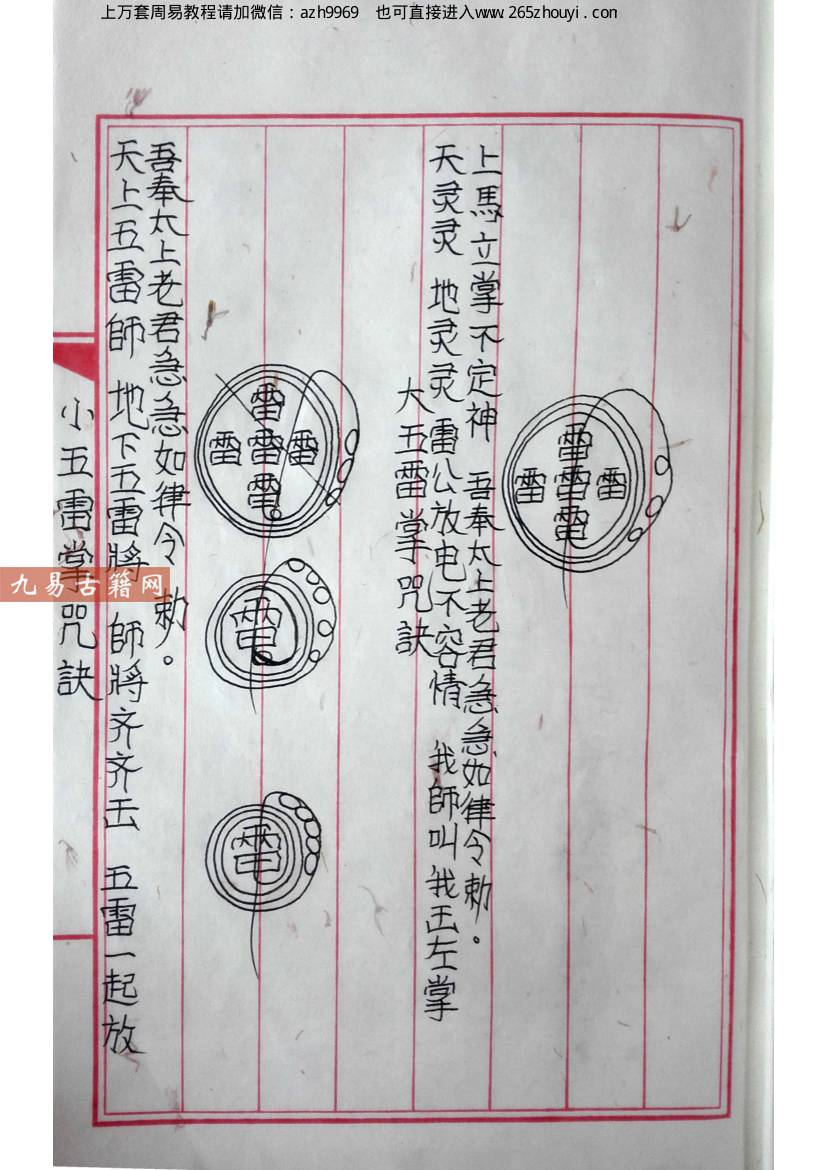 上万套周易教程请加微信：azh9969 也可直接进入www.265zhouyi.com
小五雷掌咒訣
天上五雷師 地下五雷將 師將齐齐 五雷一起放
吾奉太上老君急急如律令 勅。
雷
雷 雷 雷
電
電
電
大五雷掌咒訣
天灵灵 地灵灵 雷公放电不容情 我師叫我 左掌
上馬立掌不定神 吾奉太上老君急急如律令勅。
雷
雷 雷 雷
電
九易古籍网